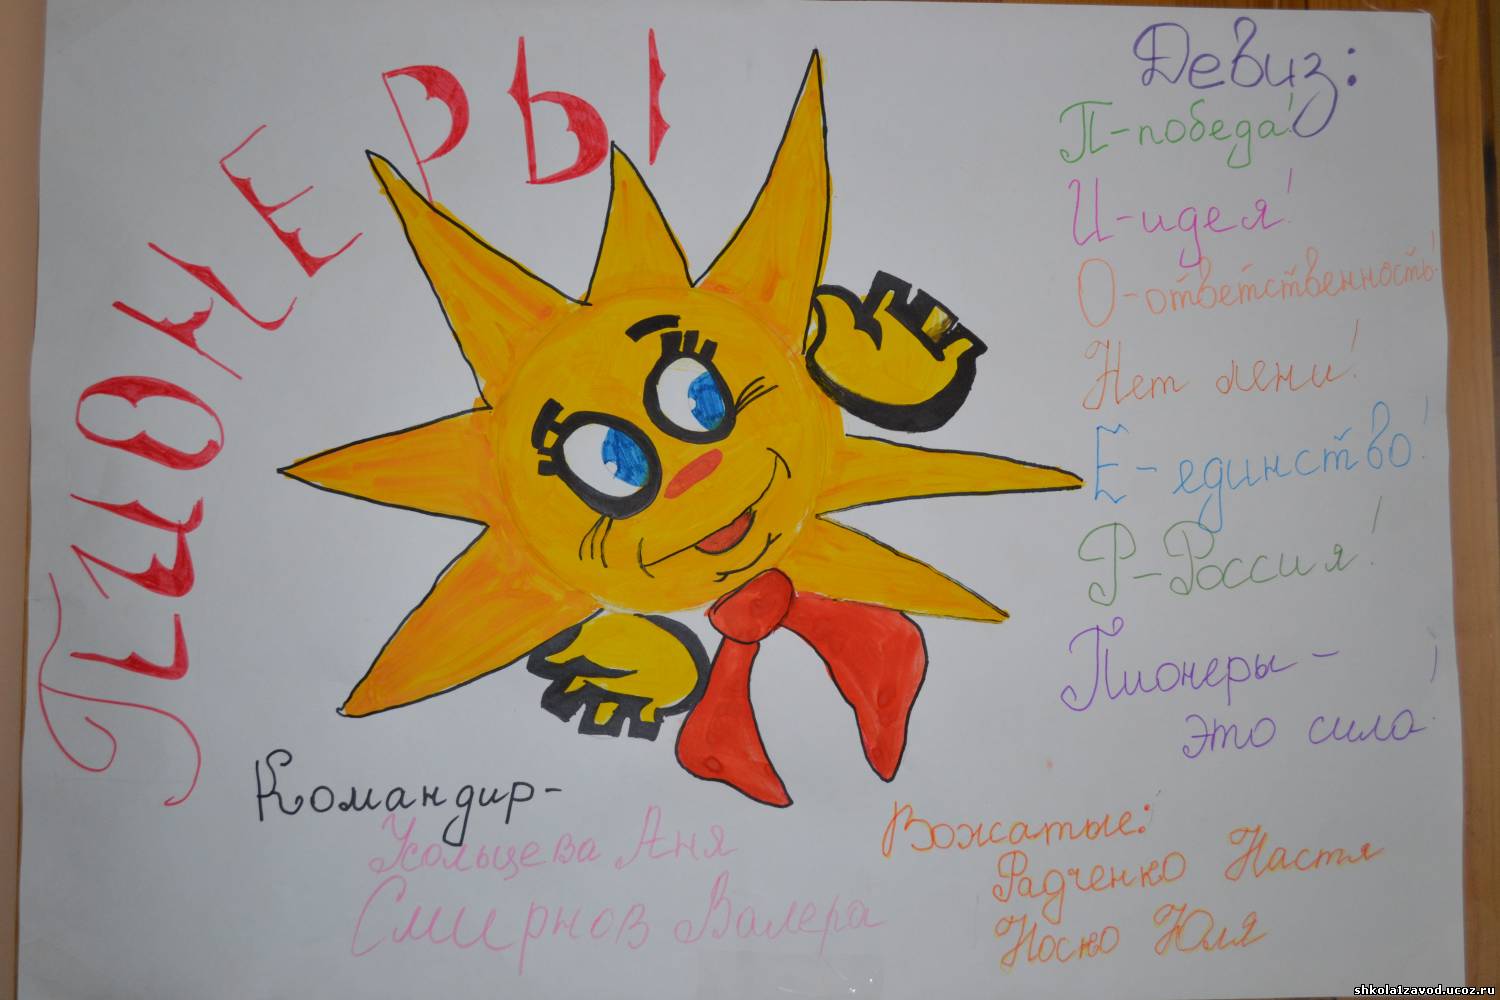 ПИОНЕРЫ
Девиз:
П-победа!
И-идея!
О-ответственность!
Нет лени!
Е-единство!
Р-Россия!
Пионеры -
это сила!
Командир-
Усольцева Аня
Смирнов Валера
Вожатые:
Радченко Настя
Носко Юля
shkola1zavod.ucoz.ru